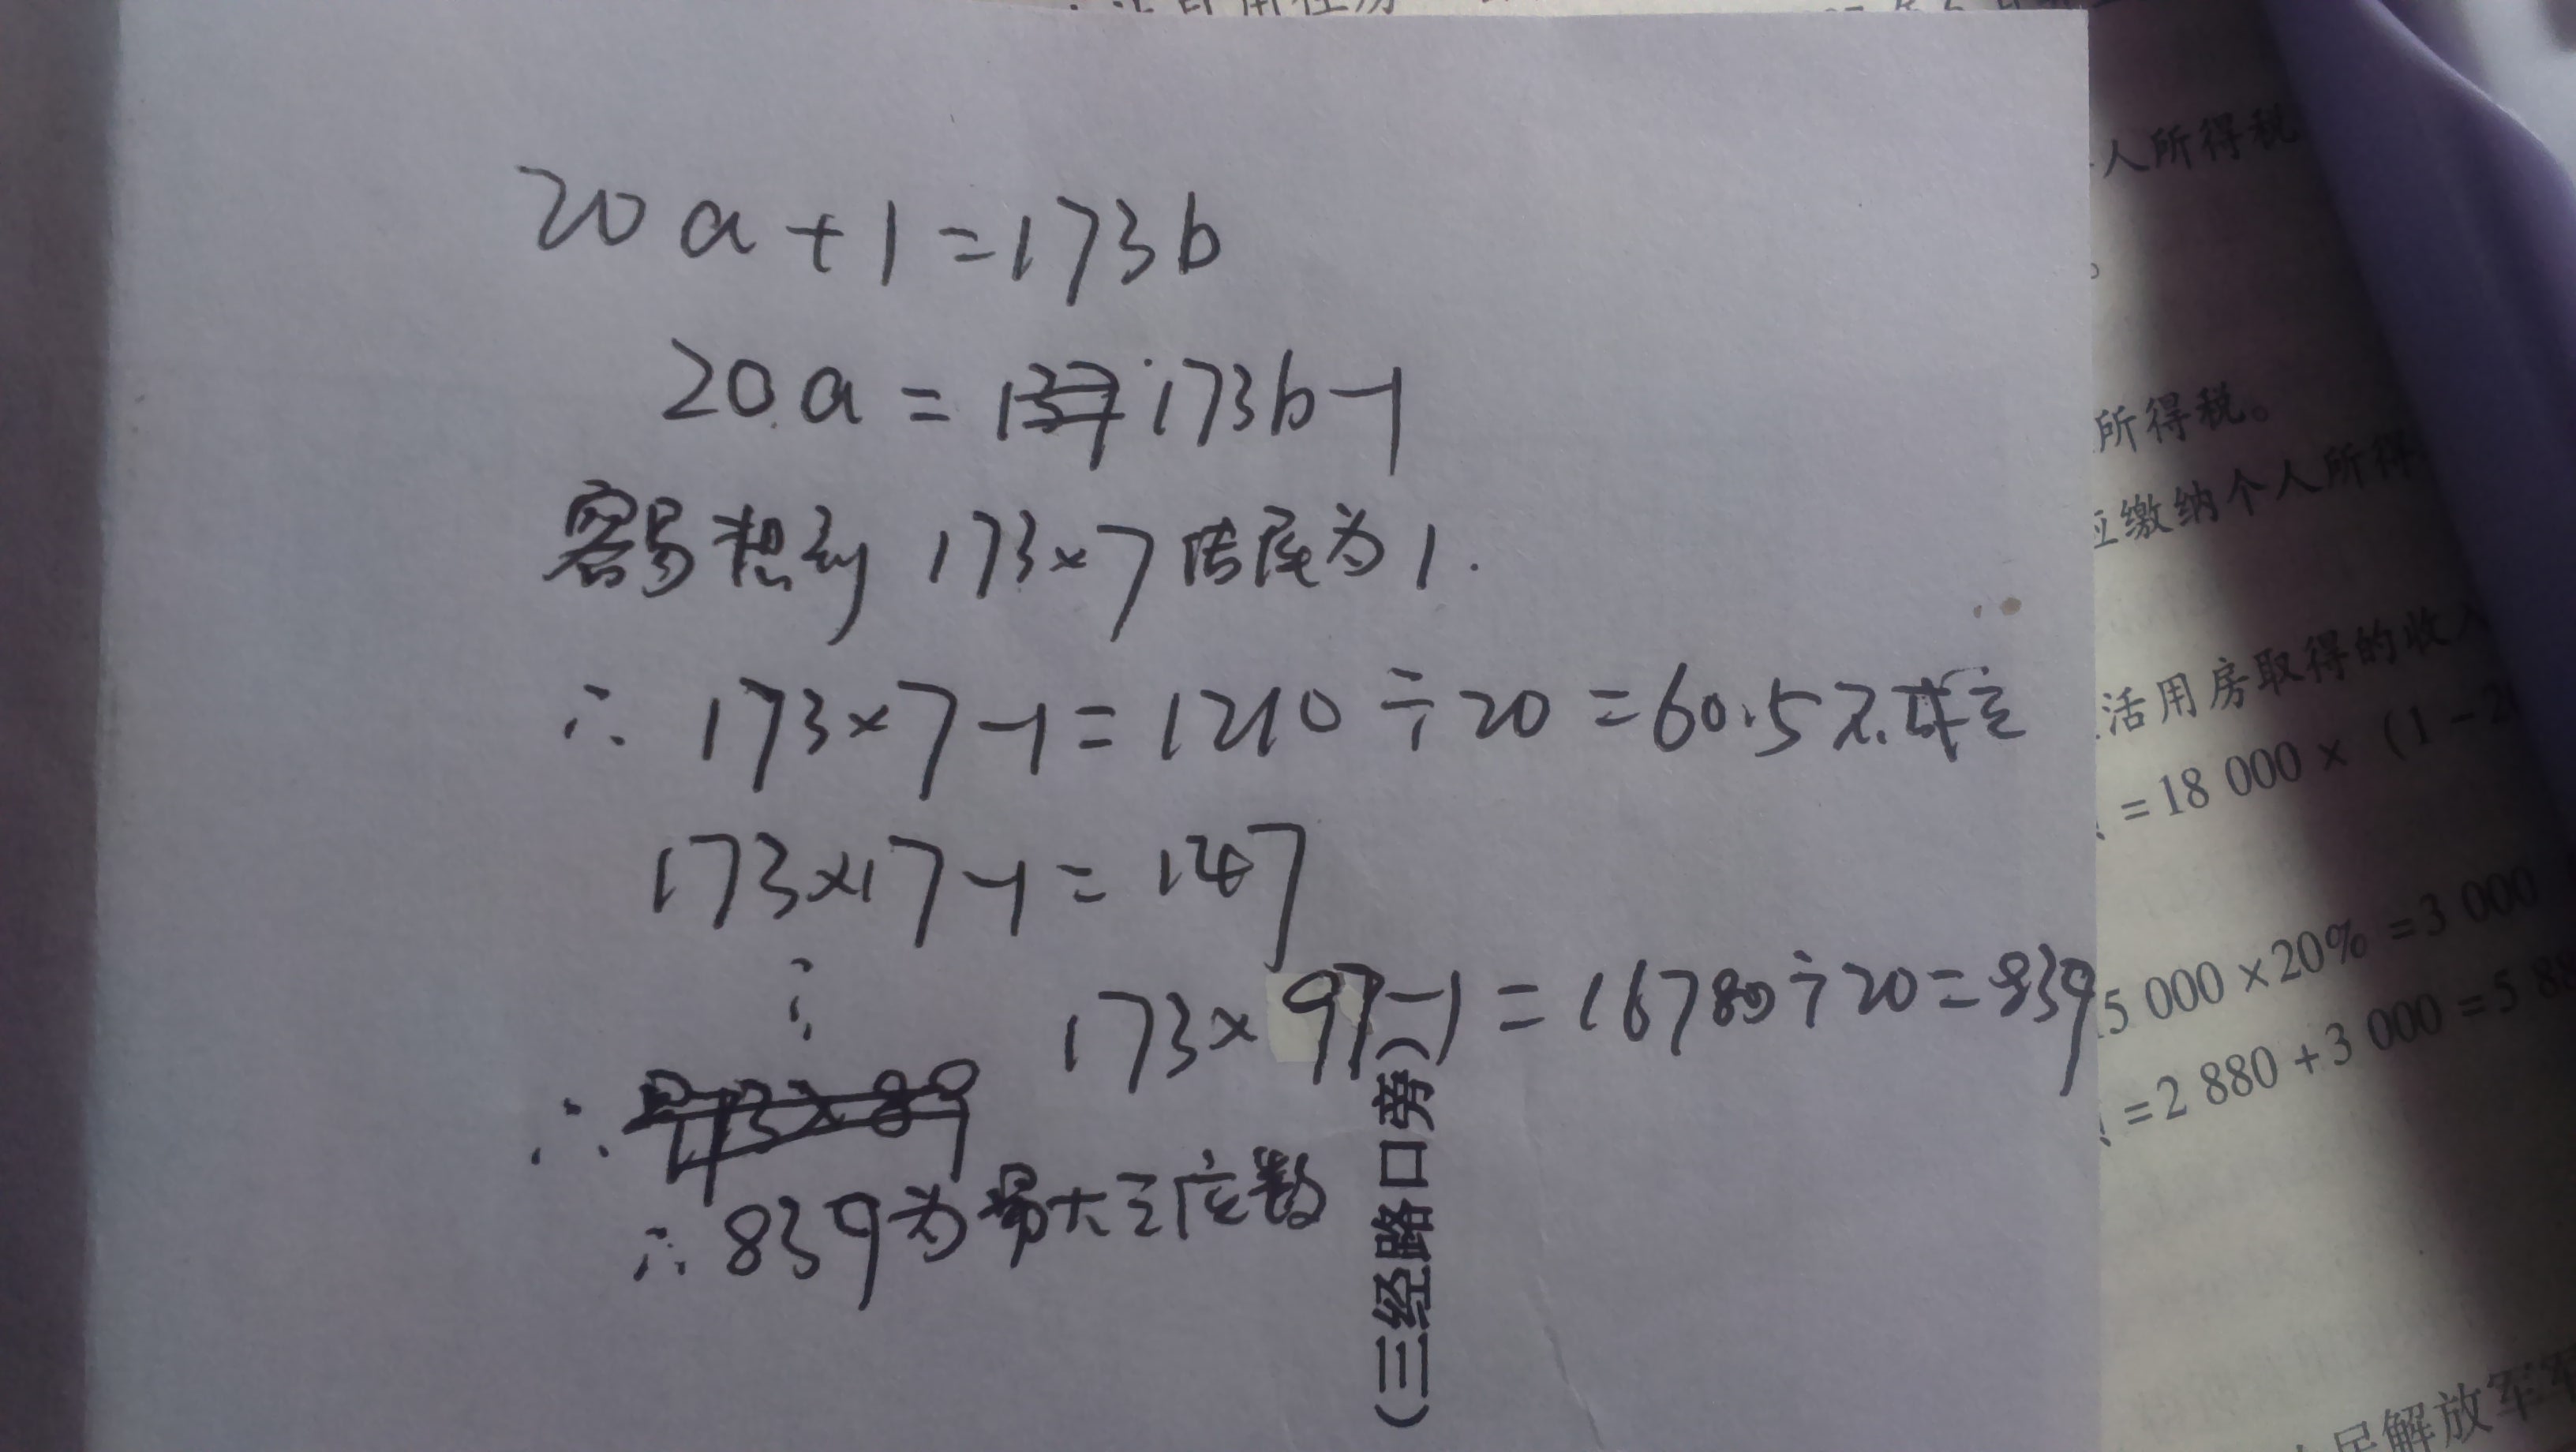 20a+1=173b
20a=137 173b-1
容易想到 173×7 结尾为1.
∴ 173×7-1=1210÷20=60.5不成立
173×17-1=147
173×97-1=16780÷20=839
∴ 173×89
∴ 839为最大三位数
(三经路口旁)
人所得税
。
所得税。
应缴纳个人所得
活用房取得的收入
=18 000×(1-2
5 000×20%=3 000
=2 880+3 000=5 88
民解放军军